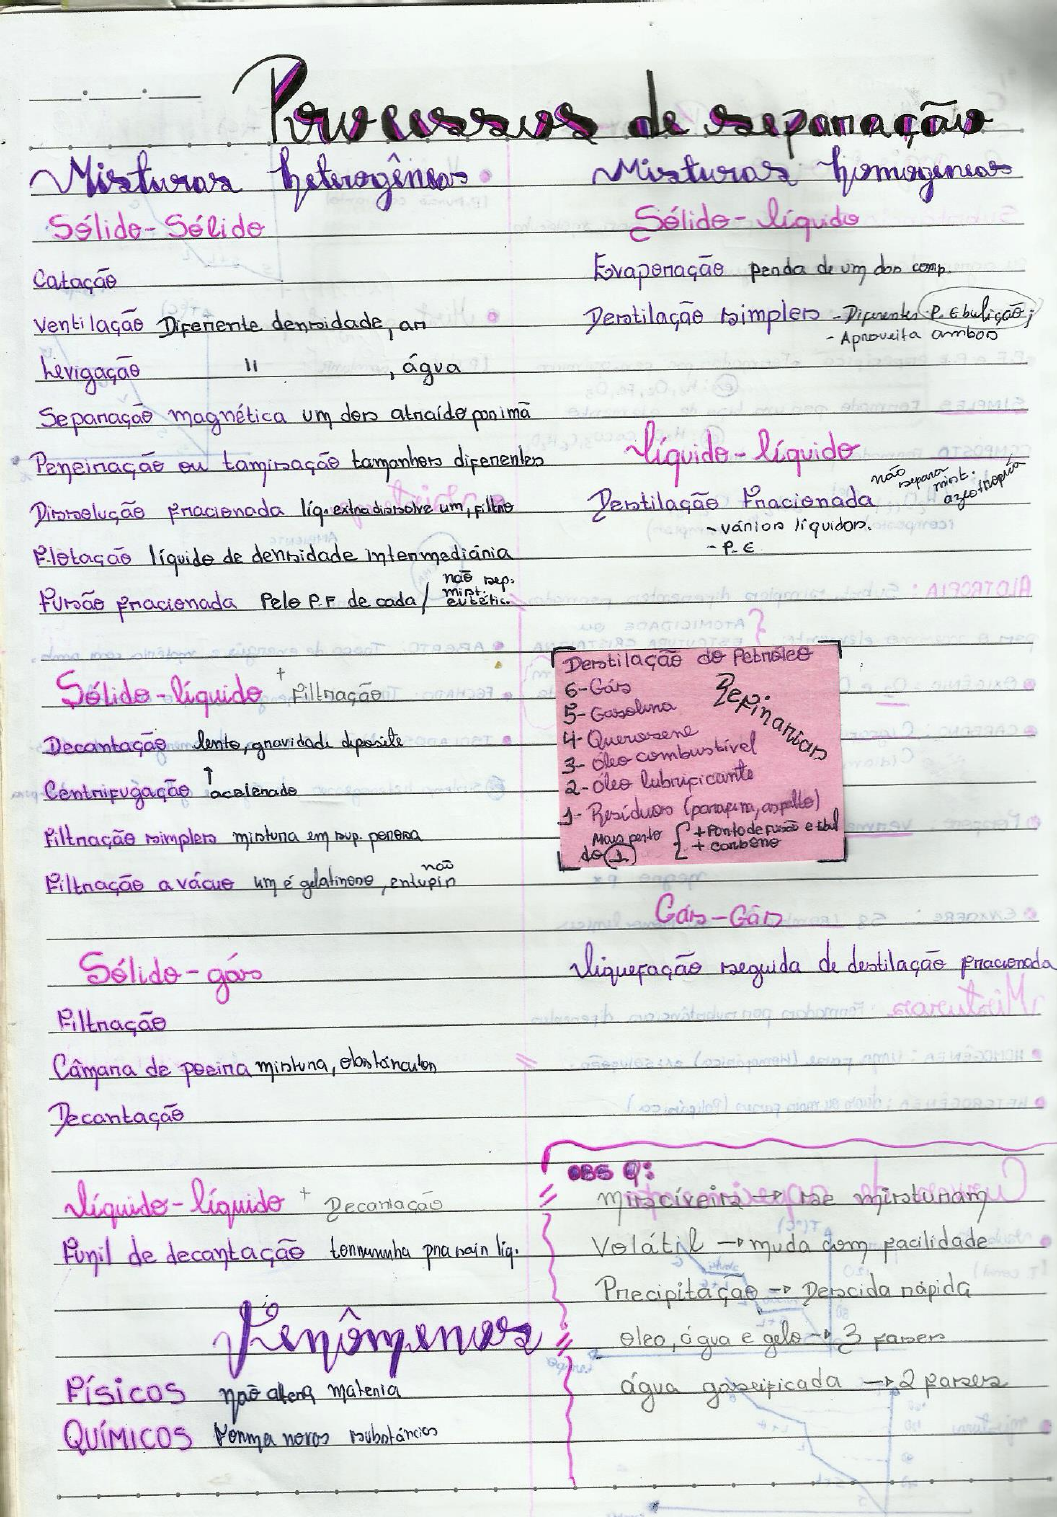 Processos de separação
Misturas heterogêneas
Sólido-Sólido
Catação
Ventilação Diferente densidade, ar
Levigação " , água
Separação magnética um dos atraído por imã
Peneiração ou tamisação tamanhos diferentes
Dissolução fracionada líq. extra dissolve um, filtro
Flotação líquido de densidade intermediária
Fusão fracionada Pelo P.F de cada / não sep. mist. eutétic.
Sólido-líquido + Filtração
Decantação lento, gravidade deposite
Centrifugação ↑ acelerado
Filtração simples mistura em sup. porosa
Filtração a vácuo um é gelatinoso, não entupir
Sólido-gás
Filtração
Câmara de poeira mistura, obstáculos
Decantação
líquido-líquido + Decantação
Funil de decantação torneirinha pra sair líq.
Fenômenos
Físicos não altera matéria
QUÍMICOS Forma novas substâncias
Misturas homogêneas
Sólido-líquido
Evaporação perda de um dos comp.
Destilação simples - Diferentes P. Ebulição;
- Aproveita ambos
líquido-líquido
Destilação Fracionada não separa mist. azeotrópica
- vários líquidos.
- P.E
Destilação do Petróleo
6-Gás
5-Gasolina
4-Querosene
3-óleo combustível
2-óleo lubrificante
1-Resíduos (parafina, asfalto)
Refinarias
Mais perto do 1 { + Ponto de fusão e ebul
+ carbono
Gás-Gás
liquefação seguida de destilação fracionada
OBS Q:
miscíveis → se misturam
Volátil → muda com facilidade
Precipitação → Descida rápida
oleo, água e gelo → 3 fases
água gaseificada → 2 fases